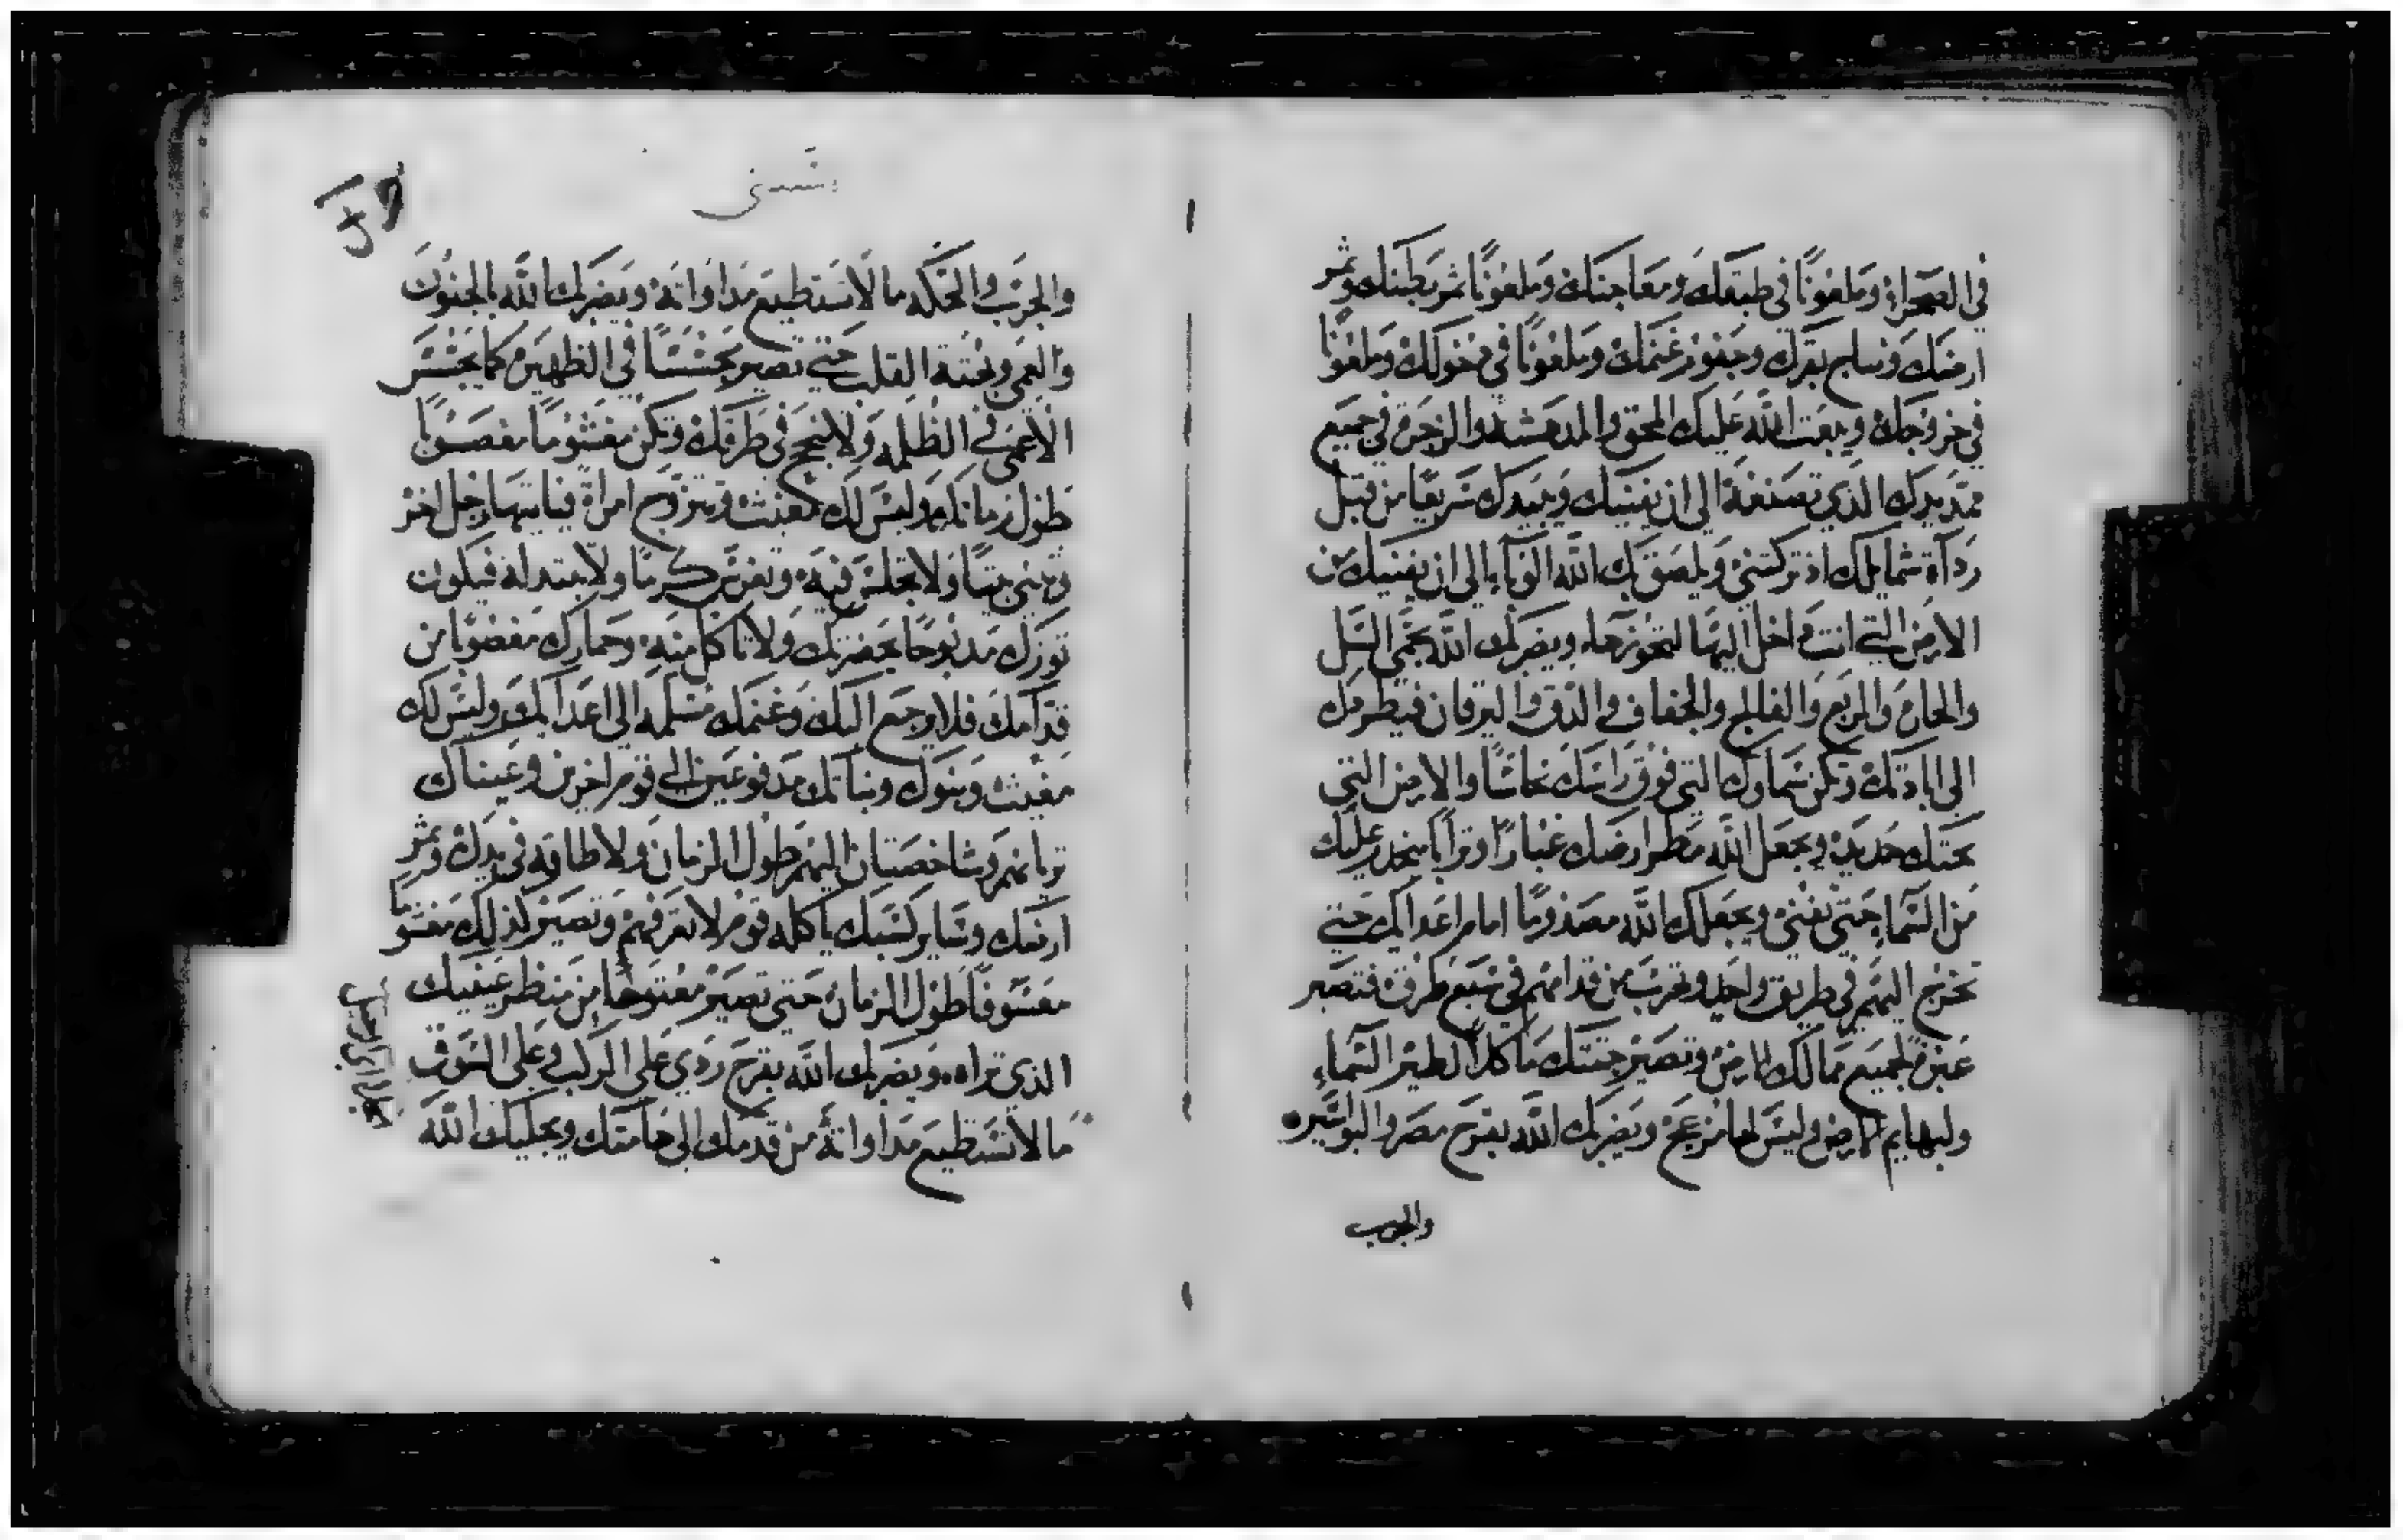 في الصحراء وملعونًا في طبقك ومعاجنك وملعونًا ثمر بطنك وثمر
ارضك ونتاج بقرك وجفور غنمك وملعونًا في دخولك وملعونًا
في خروجك ويبعث الله عليك المحق والمدهشه والزجرة في جميع
ممتد يدك الذي تصنعه الى ان يفنيك ويبيدك سريعًا من قبل
رداة شمايلك اذ تركتني ويلصق بك الله الوباء الى ان يفنيك من
الارض التي انت داخل اليها لتحوزها، ويضربك الله بحمى السل
والحارة والربع والفالج والجفاف والدق واليرقان فيطردك
الى ابادتك وتكن سماوك التي فوق راسك نحاسًا والارض التي
تحتك حديد، ويجعل الله مطر ارضك غبارًا وترابًا ينحدر عليك
من السماء حتى تفنى ويجعلك الله مصدومًا امام اعدايك حتى
تخرج اليهم في طريق واحد وتهرب من قدامهم في سبع طرق فتصير
عبرة لجميع ممالك الارض وتصير جثتك ماكلاً لطير السماء
ولبهايم الارض وليس لها مزعج ويضربك الله بقرح مصر والبواسير
والجرب
والجرب والحكه ما لا تستطيع مداواته ويضربك الله بالجنون
والعمى وبهتة القلب حتى تصير تجسسًا في الظهيرة كما يجسس
الاعمى في الظلمه ولا تنجح في طرقك وتكن مغشومًا مغصوبًا
طول زمانك وليس لك مغيث وتتزوج امراة فياتيها رجل اخر
وتبني بيتًا ولا تجلس فيه، وتغرس كرمًا ولا تبتدله فيكون
ثورك مدبوحًا بحضرتك ولا تاكل منه، وحمارك مغصوبًا من
قدامك فلا يرجع اليك وغنمك مسلمه الى اعدايك وليس لك
مغيث وبنوك وبناتك مدفوعين الى قوم اخرين وعيناك
تريانهم وشاخصتان اليهم طول الزمان ولا طاقه في يدك وثمر
ارضك وساير كسبك ياكله قوم لا تعرفهم وتصير كذلك مغشومًا
معسوفًا طول الزمان حتى تصير معتوهًا من منظر عينيك
الذي تراه، ويضربك الله بقرح ردي على الركب وعلى السوق
ما لا تستطيع مداواته من قدمك الى هامتك ويجليك الله